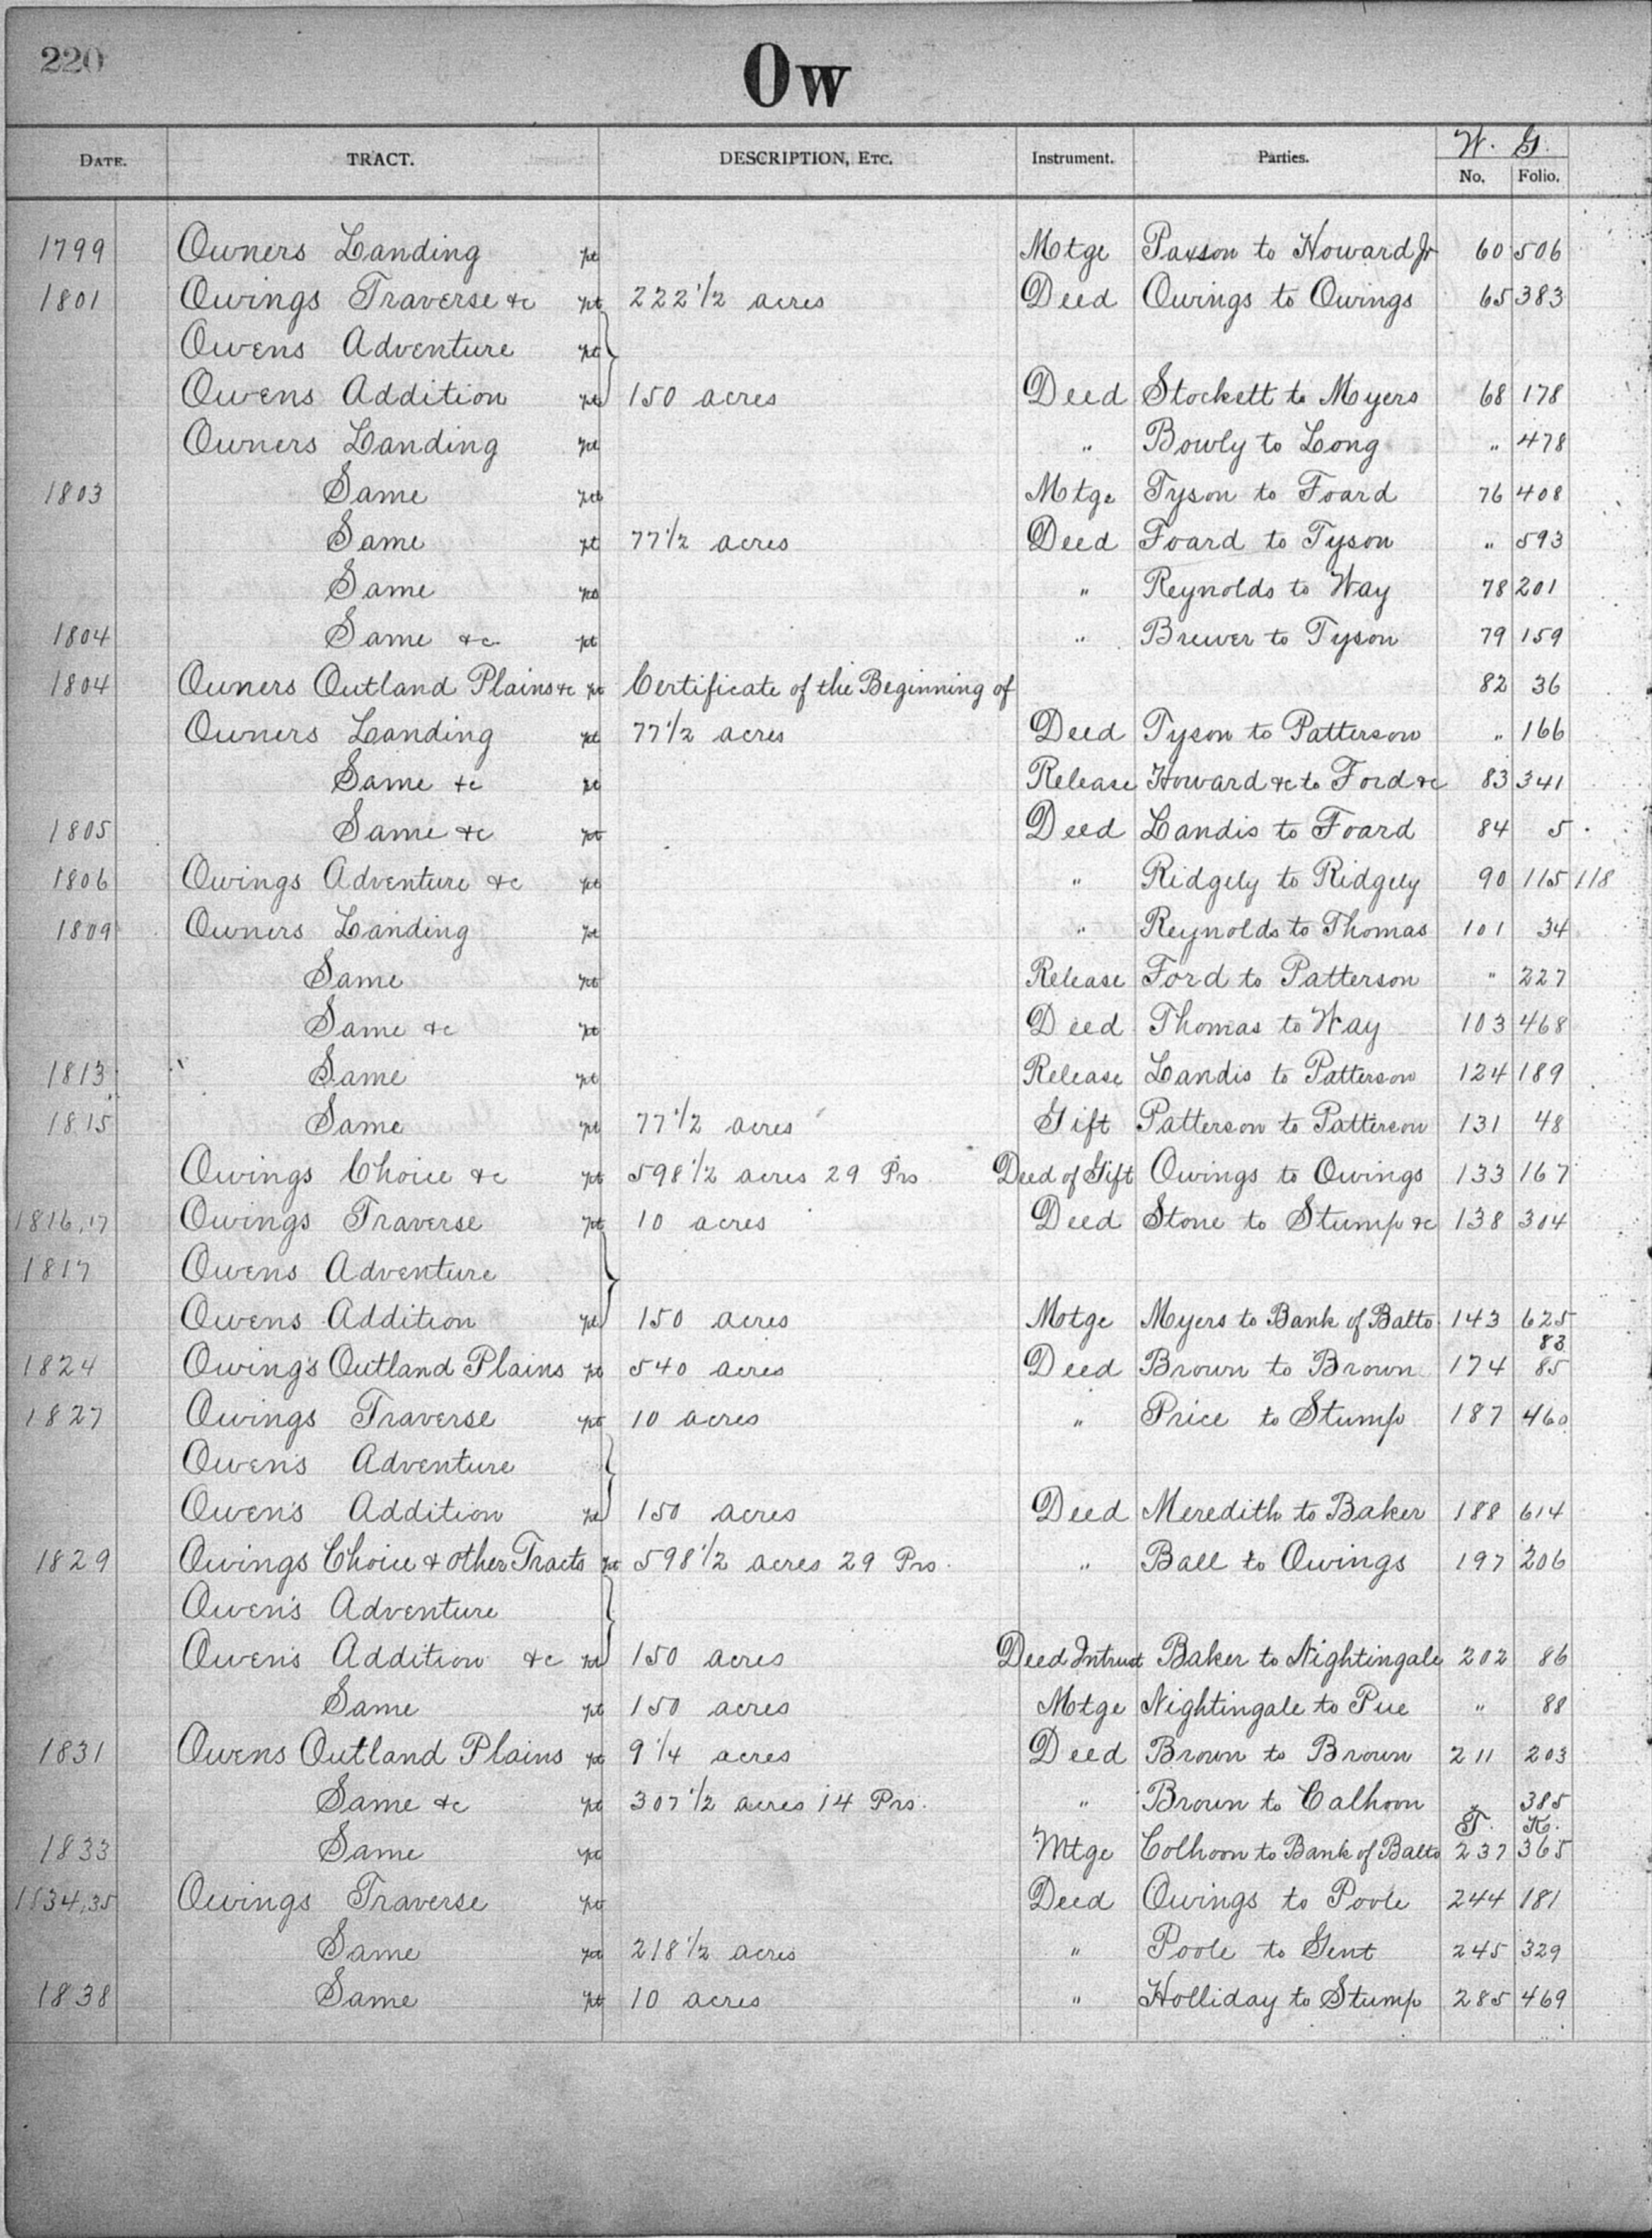 220
Ow
W. G.
DATE. TRACT. DESCRIPTION, ETC. Instrument. Parties. No. Folio.
1799 Owners Landing pt Mtge Paxson to Howard Jr 60 506
1801 Owings Traverse &c pt 222 1/2 acres Deed Owings to Owings 65 383
Owens Adventure pt
Owens Addition pt } 150 acres Deed Stockett to Myers 68 178
Owners Landing pt " Bowly to Long " 478
1803 Same pt Mtge Tyson to Foard 76 408
Same pt 77 1/2 acres Deed Foard to Tyson " 593
Same pt " Reynolds to Way 78 201
1804 Same &c pt " Brewer to Tyson 79 159
1804 Owners Outland Plains &c pt Certificate of the Beginning of 82 36
Owners Landing pt 77 1/2 acres Deed Tyson to Patterson " 166
Same &c pt Release Howard &c to Ford &c 83 341
1805 Same &c pt Deed Landis to Foard 84 5
1806 Owings Adventure &c pt " Ridgely to Ridgely 90 115 118
1809 Owners Landing pt " Reynolds to Thomas 101 34
Same pt Release Ford to Patterson " 227
Same &c pt Deed Thomas to Way 103 468
1813 Same pt Release Landis to Patterson 124 189
1815 Same pt 77 1/2 acres Gift Patterson to Patterson 131 48
Owings Choice &c pt 598 1/2 acres 29 Prs Deed of Gift Owings to Owings 133 167
1816,17 Owings Traverse pt 10 acres Deed Stone to Stump &c 138 304
1817 Owens Adventure
Owens Addition pt } 150 acres Motge Myers to Bank of Balto. 143 625
83
1824 Owing's Outland Plains pt 540 acres Deed Brown to Brown 174 85
1827 Owings Traverse pt 10 acres " Price to Stump 187 460
Owen's Adventure
Owen's Addition pt } 150 acres Deed Meredith to Baker 188 614
1829 Owings Choice & other Tracts pt 598 1/2 acres 29 Prs. " Ball to Owings 197 206
Owen's Adventure
Owen's Addition &c pt } 150 acres Deed Intrust Baker to Nightingale 202 86
Same pt 150 acres Mtge Nightingale to Pue " 88
1831 Owens Outland Plains pt 9 1/4 acres Deed Brown to Brown 211 203
Same &c pt 307 1/2 acres 14 Prs. " Brown to Calhoon " 385
T. K.
1833 Same pt Mtge Colhoon to Bank of Balto 237 365
1834,35 Owings Traverse pt Deed Owings to Poole 244 181
Same pt 218 1/2 acres " Poole to Gent 245 329
1838 Same pt 10 acres " Holliday to Stump 285 469